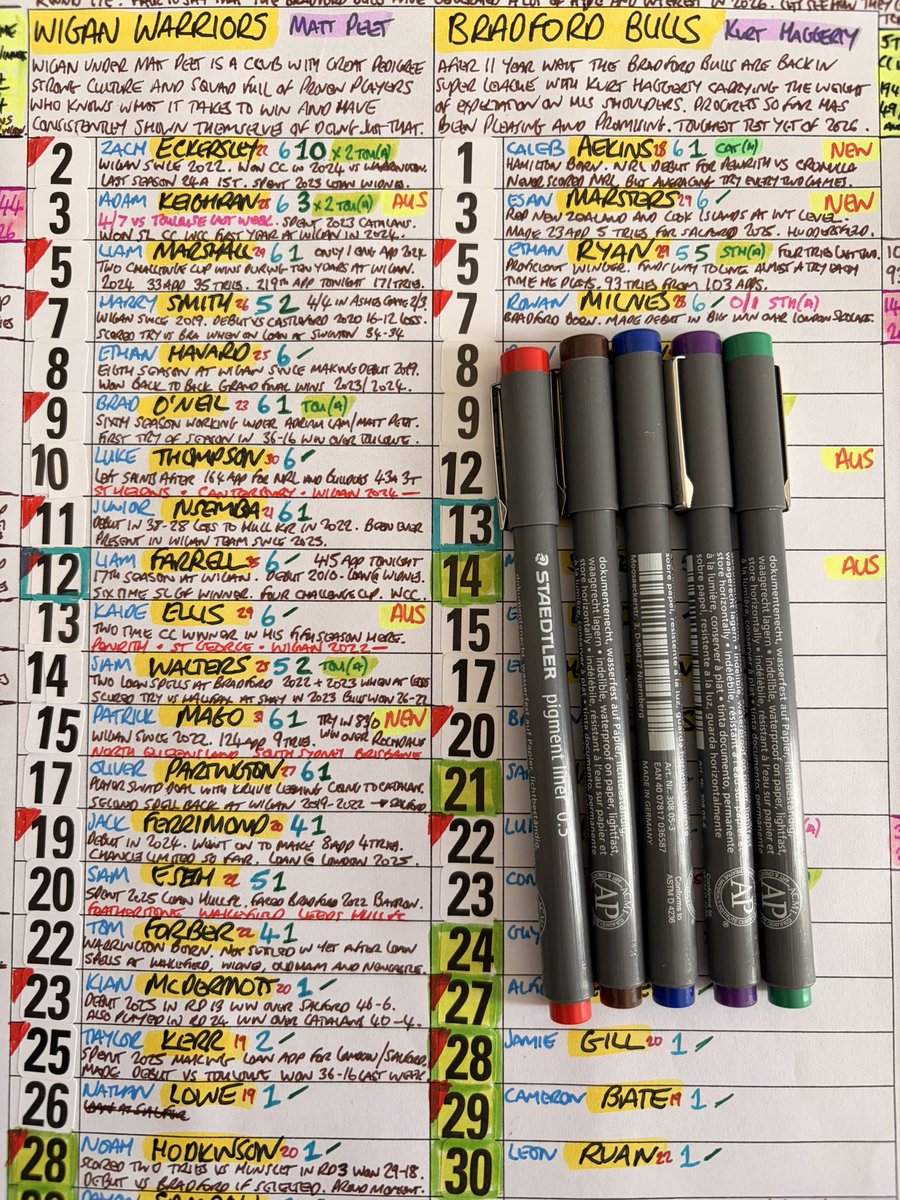 WIGAN WARRIORS MATT PEET
WIGAN UNDER MAT PEET IS A CLUB WITH GREAT PEDIGREE
STRONG CULTURE AND SQUAD FULL OF PROVEN PLAYERS
WHO KNOWS WHAT IT TAKES TO WIN AND HAVE
CONSISTENTLY SHOWN THEMSELVES OF DOING JUST THAT.
2 ZACH ECKERSLEY 22 6 10 x 2 TOU(A)
WIGAN SINCE 2022. WON CC IN 2024 VS WARRINGTON.
LAST SEASON 24A 15T. SPENT 2023 LOAN WIDNES.
3 ADAM KEIGHRAN 28 6 3 x 2 TOU(A) AUS
4/7 VS TOULOUSE LAST WEEK. SPENT 2023 CATALANS.
WON SL CC WCC FIRST YEAR AT WIGAN IN 2024.
5 LIAM MARSHALL 29 6 1 ONLY 1 APP 2026
TWO CHALLENGE CUP WINS DURING TEN YEARS AT WIGAN.
2024 33 APP 35 TRIES. 219TH APP TONIGHT 171 TRIES.
7 HARRY SMITH 26 5 2 4/4 IN ASHES GAME 2/3
WIGAN SINCE 2019. DEBUT VS CASTLEFORD 2020 16-12 LOSS.
SCORED TRY VS BRA WHEN ON LOAN AT SWINTON 34-34
8 ETHAN HAVARD 25 6 ✓
EIGTH SEASON AT WIGAN SINCE MAKING DEBUT 2019.
WON BACK TO BACK GRAND FINAL WINS 2023/2024.
9 BRAD O'NEIL 23 6 1 TOU(A)
SIXTH SEASON WORKING UNDER ADRIAN LAM/MATT PEET.
FIRST TRY OF SEASON IN 36-16 WIN OVER TOULOUSE.
10 LUKE THOMPSON 30 6 ✓
LEFT SAINTS AFTER 164 APP FOR NRL AND BULLDOGS 43A 3T
ST HELENS • CANTERBURY • WIGAN 2024 —
11 JUNIOR NSEMBA 21 6 1
DEBUT IN 38-28 LOSS TO HULL KR IN 2022. BEEN EVER
PRESENT IN WIGAN TEAM SINCE 2023.
12 LIAM FARRELL 35 6 ✓ 445 APP TONIGHT
17TH SEASON AT WIGAN. DEBUT 2010. LOAN WIDNES.
SIX TIME SLGF WINNER. FOUR CHALLENGE CUP. WCC.
13 KAIDE ELLIS 29 6 ✓ AUS
TWO TIME CC WINNER IN HIS FIFTH SEASON HERE.
PENRITH • ST GEORGE • WIGAN 2022 —
14 SAM WALTERS 25 5 2 TOU(A)
TWO LOAN SPELLS AT BRADFORD 2022 + 2023 WHEN AT LEEDS
SCORED TRY VS HALIFAX AT SHAY IN 2023 BULLS WON 26-22
15 PATRICK MAGO 31 6 1 TRY IN NEW
WIGAN SINCE 2022. 124 APP 9 TRIES. WIN OVER ROCHDALE
NORTH QUEENSLAND SOUTH SYDNEY BRISBANE
17 OLIVER PARTINGTON 27 6 1
PLAYER SWAP DEAL WITH KRUISE LEEMING GOING TO CATALAN.
SECOND SPELL BACK AT WIGAN 2019-2022 → SALFORD
19 JACK FERRIMOND 20 4 1
DEBUT IN 2024. WENT ON TO MAKE 8 APP 4 TRIES.
CHANCE LIMITED SO FAR. LOAN @ LONDON 2025.
20 SAM ESEH 22 5 1
SPENT 2025 LOAN HULL FC. FACED BRADFORD 2022
FEATHERSTONE WAKEFIELD LEEDS HULL FC
22 TOM FORBER 22 4 1
WARRINGTON BORN. NOT SETTLED IN YET AFTER LOAN
SPELLS AT WAKEFIELD, WIDNES, OLDHAM AND NEWCASTLE.
23 KIAN MCDERMOTT 20 1 ✓
DEBUT 2025 IN RD 13 WIN OVER SALFORD 46-6.
ALSO PLAYED IN RD 24 WIN OVER CATALANS 40-4.
25 TAYLOR KERR 19 2 ✓
SPENT 2025 MAKING LOAN APP FOR LONDON/SALFORD.
MADE DEBUT VS TOULOUSE WON 36-16 LAST WEEK
26 NATHAN LOWE 19 1 ✓
28 NOAH HODKINSON 20 1 ✓
SCORED TWO TRIES VS HUNSLET IN RD3 WON 29-18.
DEBUT VS BRADFORD IF SELECTED. PROUD MOMENT.
BRADFORD BULLS KURT HAGGERTY
AFTER 11 YEAR WAIT THE BRADFORD BULLS ARE BACK IN
SUPER LEAGUE WITH KURT HAGGERTY CARRYING THE WEIGHT
OF EXPECTATION ON HIS SHOULDERS. PROGRESS SO FAR HAS
BEEN PLEASING AND PROMISING. TOUGHEST TEST YET OF 2026.
1 CALEB AEKINS 28 6 1 CAT(H) NEW
HAMILTON BORN. NRL DEBUT FOR PENRITH VS CRONULLA
NEVER SCORED NRL BUT AVERAGING TRY EVERY TWO GAMES.
3 ESAN MARSTERS 29 6 ✓ NEW
REP NEW ZEALAND AND COOK ISLANDS AT INT LEVEL.
MADE 23 APP 5 TRIES FOR SALFORD 2025. HUDDERSFIELD.
5 ETHAN RYAN 29 5 5 STH(A) FOUR TRIES LAST TWO.
PROFICIENT WINGER. FINDS WAY TO LINE ALMOST A TRY EACH
TIME HE PLAYS. 93 TRIES FROM 103 APPS.
7 ROWAN MILNES 26 6 ✓ 0/1 STH(A)
BRADFORD BORN. MADE DEBUT IN BIG WIN OVER LONDON SKOLARS.
8
9
12 AUS
13
14 AUS
15
17
20
21
22
23
24
27
28 JAMIE GILL 20 1 ✓
29 CAMERON BATE 19 1 ✓
30 LEON RUAN 22 1 ✓
STAEDTLER pigment liner 0.5
dokumentenecht, wasserfest auf Papier, lichtbeständig,
waagerecht lagern • indelible, waterproof on paper, lightfast,
store horizontally • indélébile, résistant à l'eau sur papier et
à la lumière, conserver à plat • tinta documento, permanente
sobre papel, resistente a la luz, guarda horizontalmente
Moosäckerstr. 3 D-90427 Nuernberg
EAN 40 07817 036587
Art.-Nr. 308 05-3
MADE IN GERMANY
Conforms to
ASTM D 4236
AP